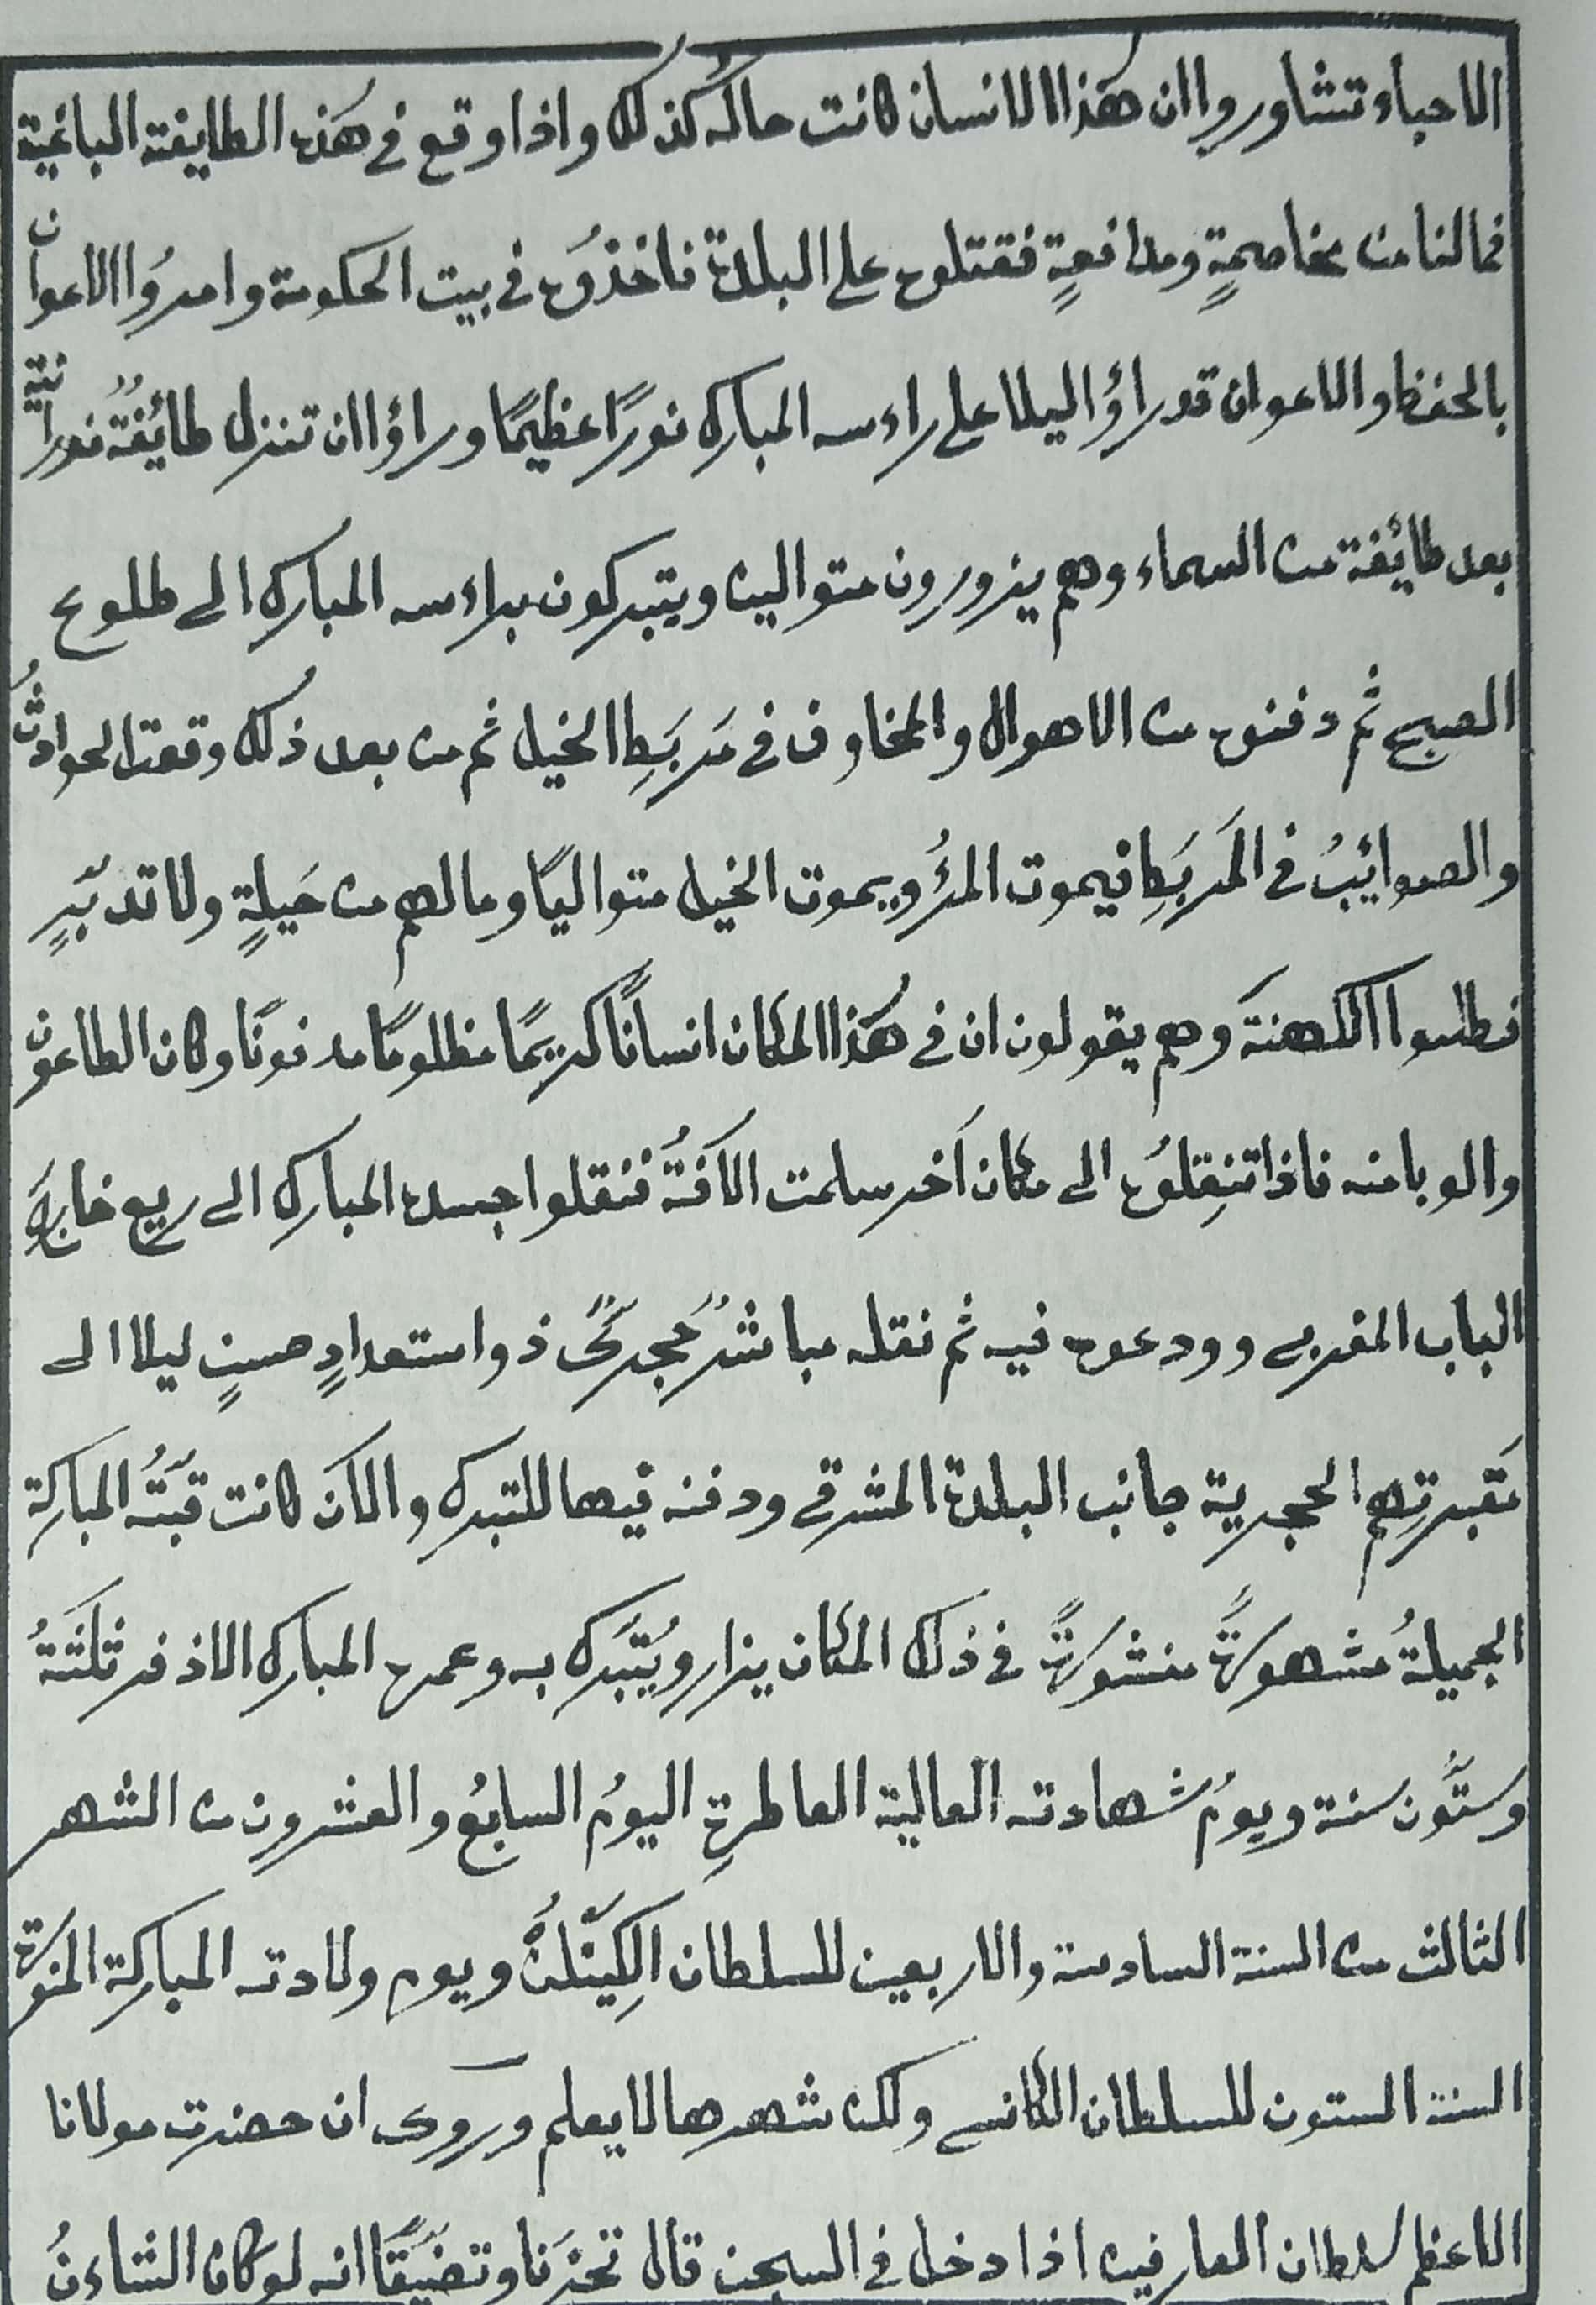 الاحباء تشاوروا ان هٰذا الانسان كانت حاله كذلك واذا وقع فى هٰذه الطايفة الباغية
فمالنا من مخاصمةٍ ومدافعةٍ فقتلوه على البلدة فاخذوه فى بيت الحكومة وامروا الاعوان
بالحفظ والاعوان قد راؤا ليلا على راءسه المبارك نورًا عظيمًا وراؤا ان تنزل طائفةٌ نورانية
بعد طائفة من السماء وهم يزورون متوالين ويتبركون براءسه المبارك الى طلوع
الصبح ثم دفنوه من الاهوال والمخاوف فى مَربَطِ الخيل ثم من بعد ذٰلك وقعت الحوادثُ
والصوائبُ فى المَربَطِ فيموت المرؤ ويموت الخيل متواليًا ومالهم من حَيلةٍ ولا تدبّيرٍ
فطلبوا الكهنةَ وهم يقولون ان فى هٰذا المكان انسانًا كريمًا مظلومًا مدفونًا وكان الطاعون
والوبا منه فاذا تنقِلوُه الى مكان آخر سلمت الآفةُ فنقلوا جسده المبارك الى ربع خارجَ
الباب الغربى وودعوه فيه ثم نقله مباشرٌ حجرىٌّ ذو استعدادٍ حسنٍ ليلا الى
مَقبرتِهم الحجرية جانب البلدة الشرقى ودفنه فيها للتبرك والآن كانت قبّتُه المباركة
الجميلةُ مشهورةً منشورةً فى ذلك المكان يزار ويُتبَرك به وعمره المبارك الاذفر ثلٰثةُ
وستّون سنة ويومُ شهادته العالية العاطرةِ اليومُ السابعُ والعشرون من الشهر
الثالث من السنة السادسة والاربعين للسلطان الكِيَنْلُنْ ويوم ولادته المباركة المنورة
السنة الستون للسلطان الكانسى ولكن شهرها لا يعلم وروى ان حضرت مولانا
الاعظم سلطان العارفين اذا دخل فى السجن قال تحزنا وتضيّقًا انه لوكان الشاءنُ